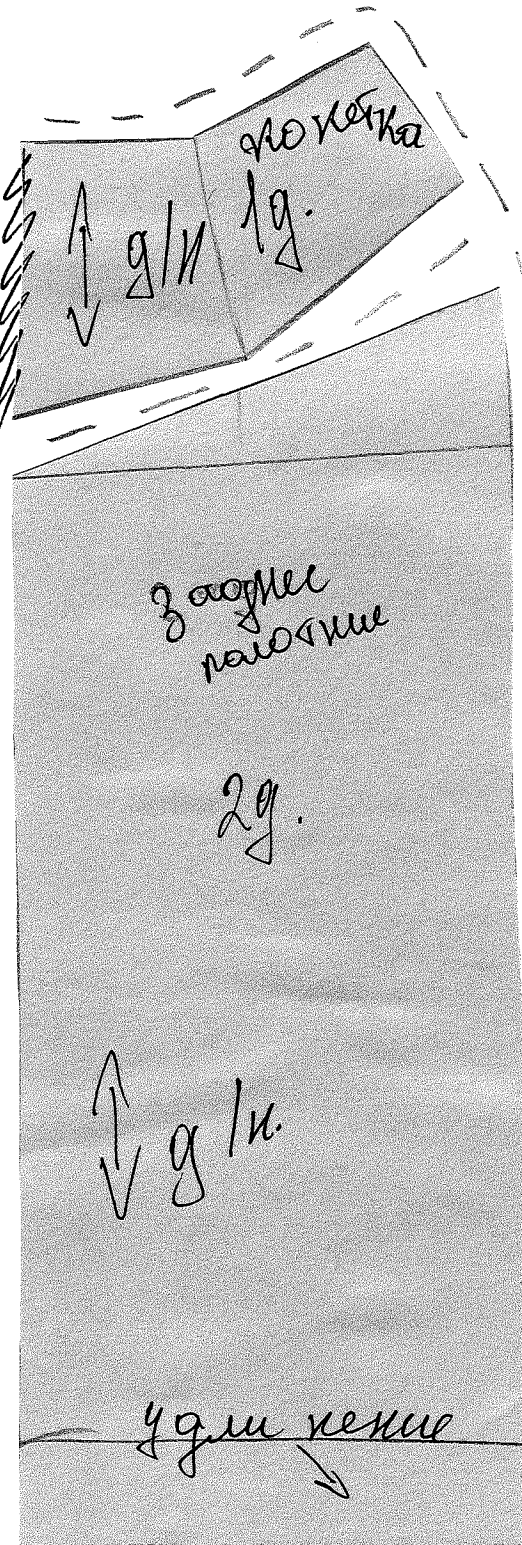 кокетка
д/н 1д.
Заднее
полотние
2д.
д/н.
удлинение